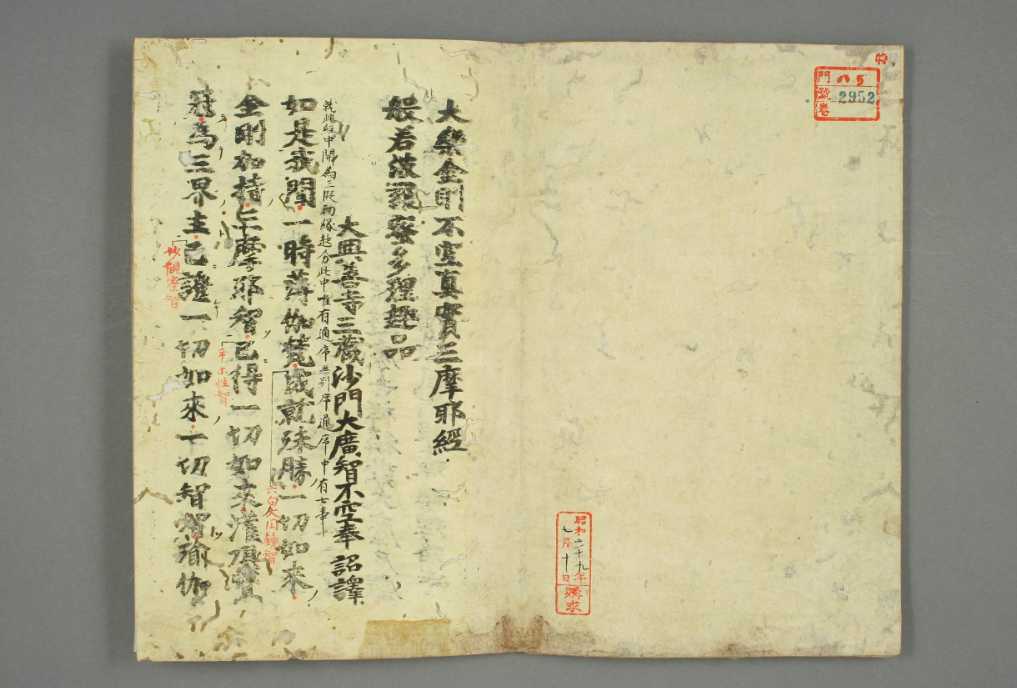 門
八5
2952
昭和二十九年
七月十日
購求
大樂金剛不空真實三摩耶經
般若波羅蜜多理趣品
大興善寺三藏沙門大廣智不空奉詔譯
有七事
如是我聞一時薄伽梵成就殊勝一切如來
金剛加持三摩耶智已得一切如來灌頂寶
平等性智
冠為三界主已證一切如來一切智智瑜伽
妙觀察智